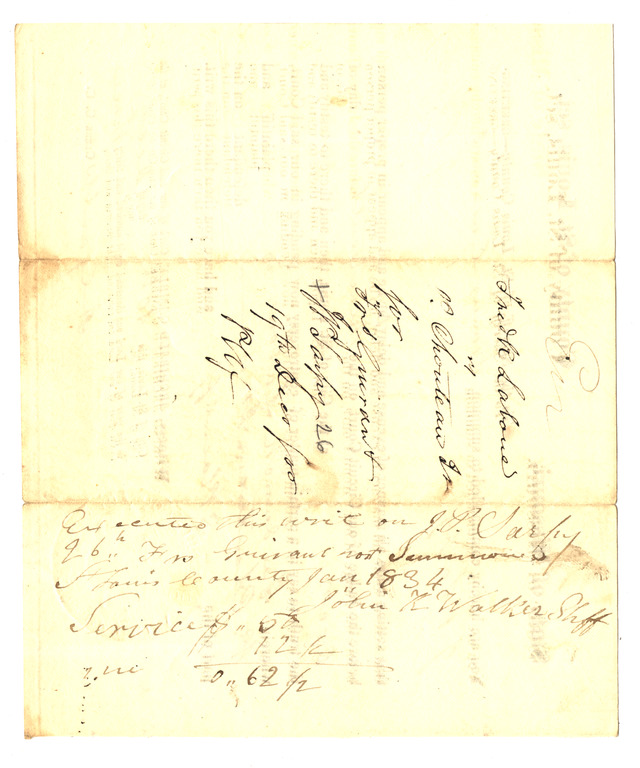 Fredk Labone
vs
P. Chouteau Jr
for
Frs Guerant
J P Sarpy 26
19th Decr for
Plff
Executed this writ on J. P. Sarpy
26th Frs Guirant not Summoned
St Louis County Jan 1834
John K Walker Shff
Service $ " 50
12 1/2
0 " 62 1/2